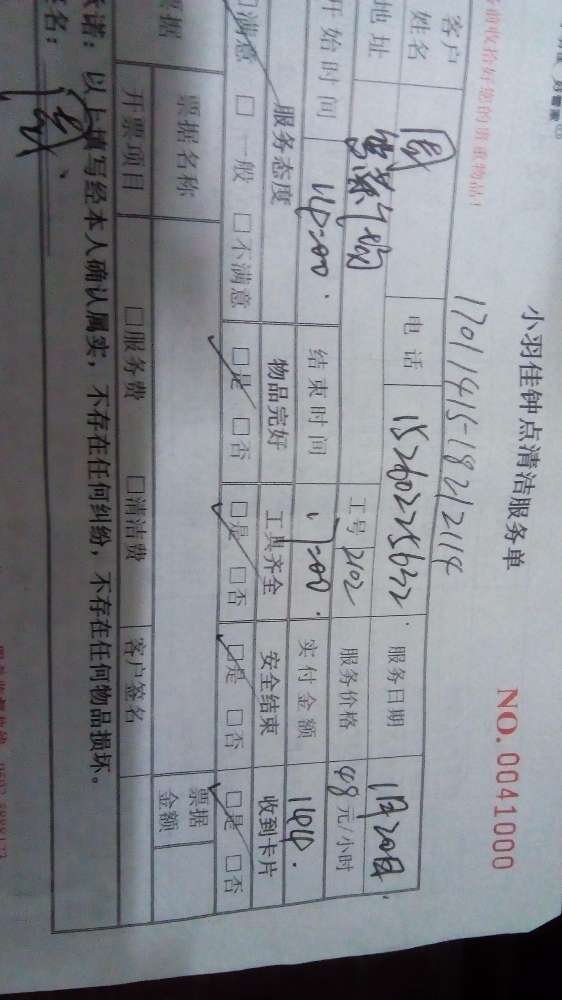 前收拾好您的贵重物品!
小羽佳钟点清洁服务单
NO. 0041000
17011415-18212114
客户姓名 周 电话 15260225632 服务日期 1月20日
地址 工号 2102 服务价格 48元/小时
开始时间 14:00 结束时间 17:00 实付金额 144
服务态度 物品完好 工具齐全 安全结束 收到卡片
□满意 □一般 □不满意 □是 □否 □是 □否 □是 □否 □是 □否
票据 票据名称 票据金额
开票项目 □服务费 □清洁费 客户签名
承诺:以上填写经本人确认属实,不存在任何纠纷,不存在任何物品损坏。
签名: